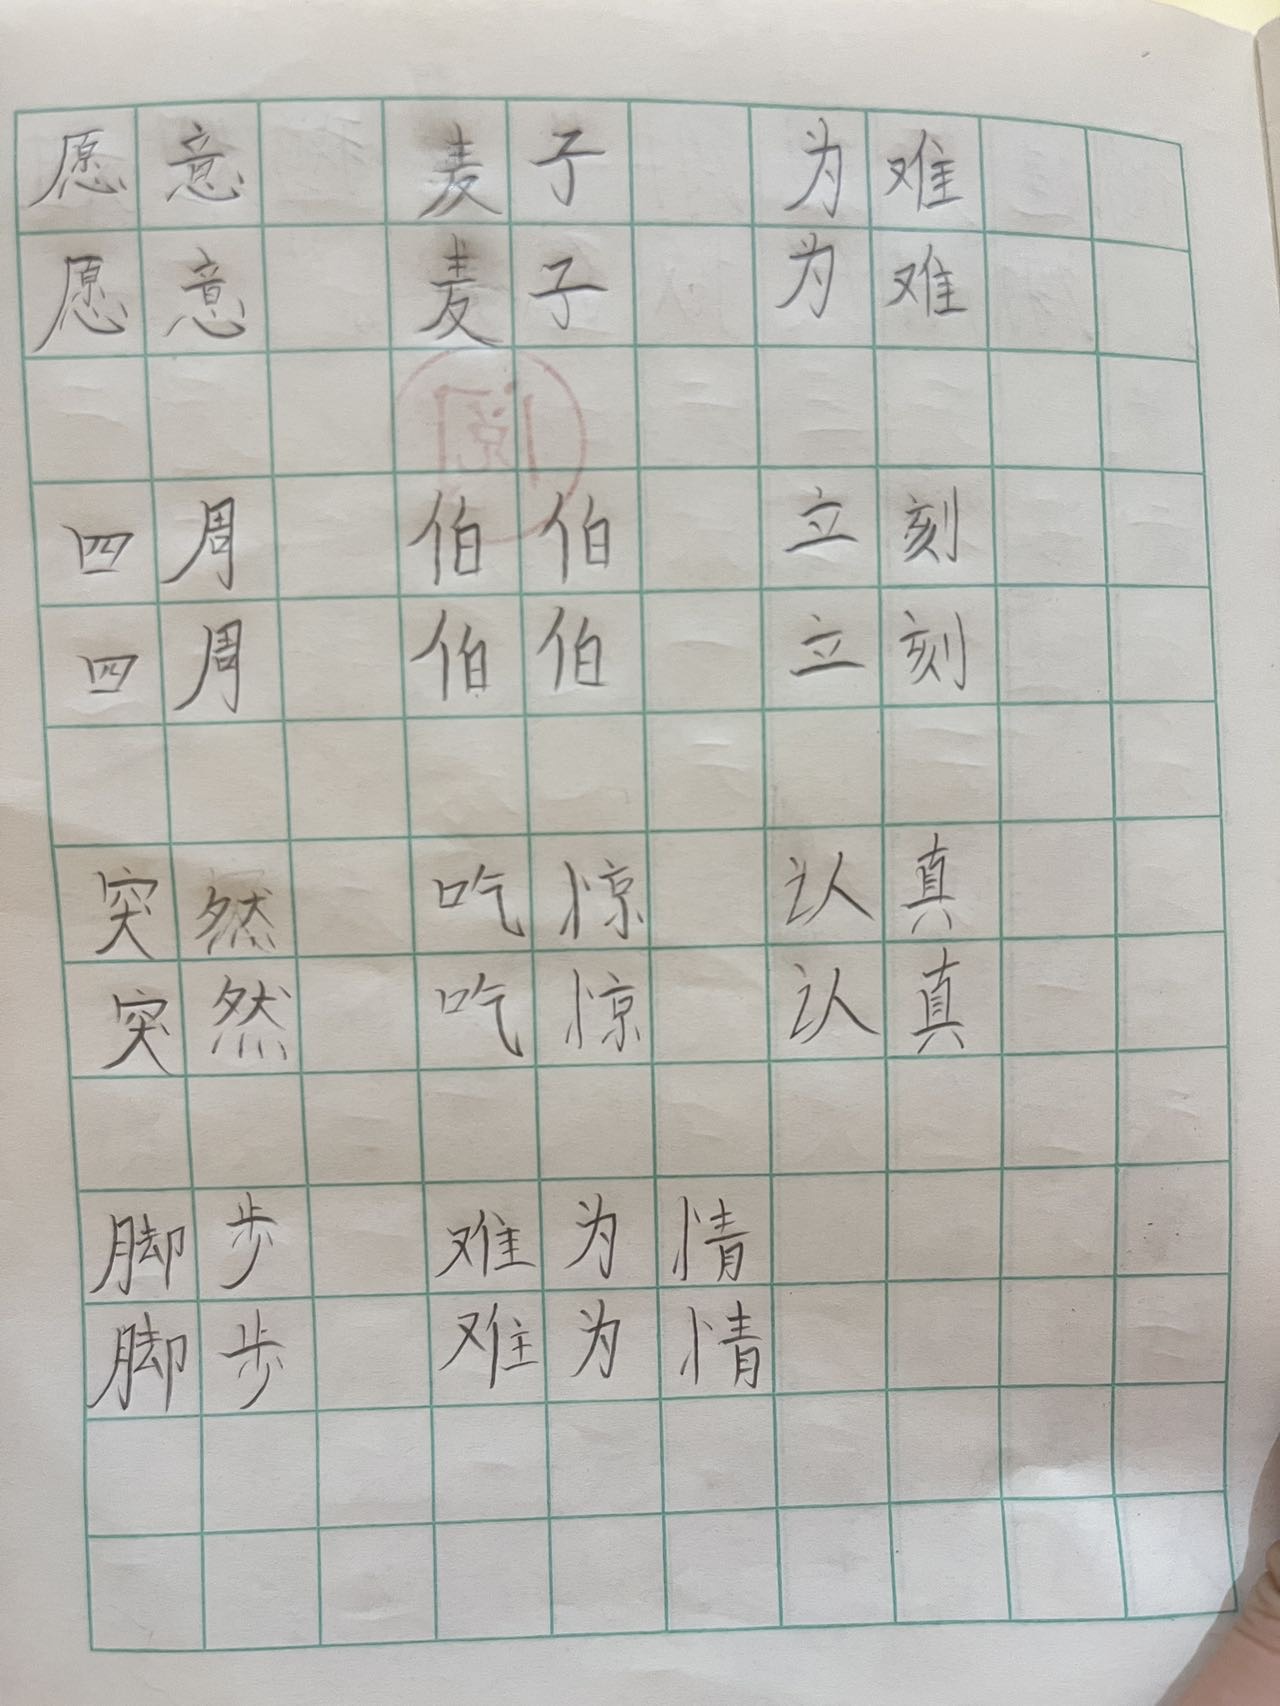 愿意 麦子 为难
愿意 麦子 为难
四周 伯伯 立刻
四周 伯伯 立刻
突然 吃惊 认真
突然 吃惊 认真
脚步 难为情
脚步 难为情